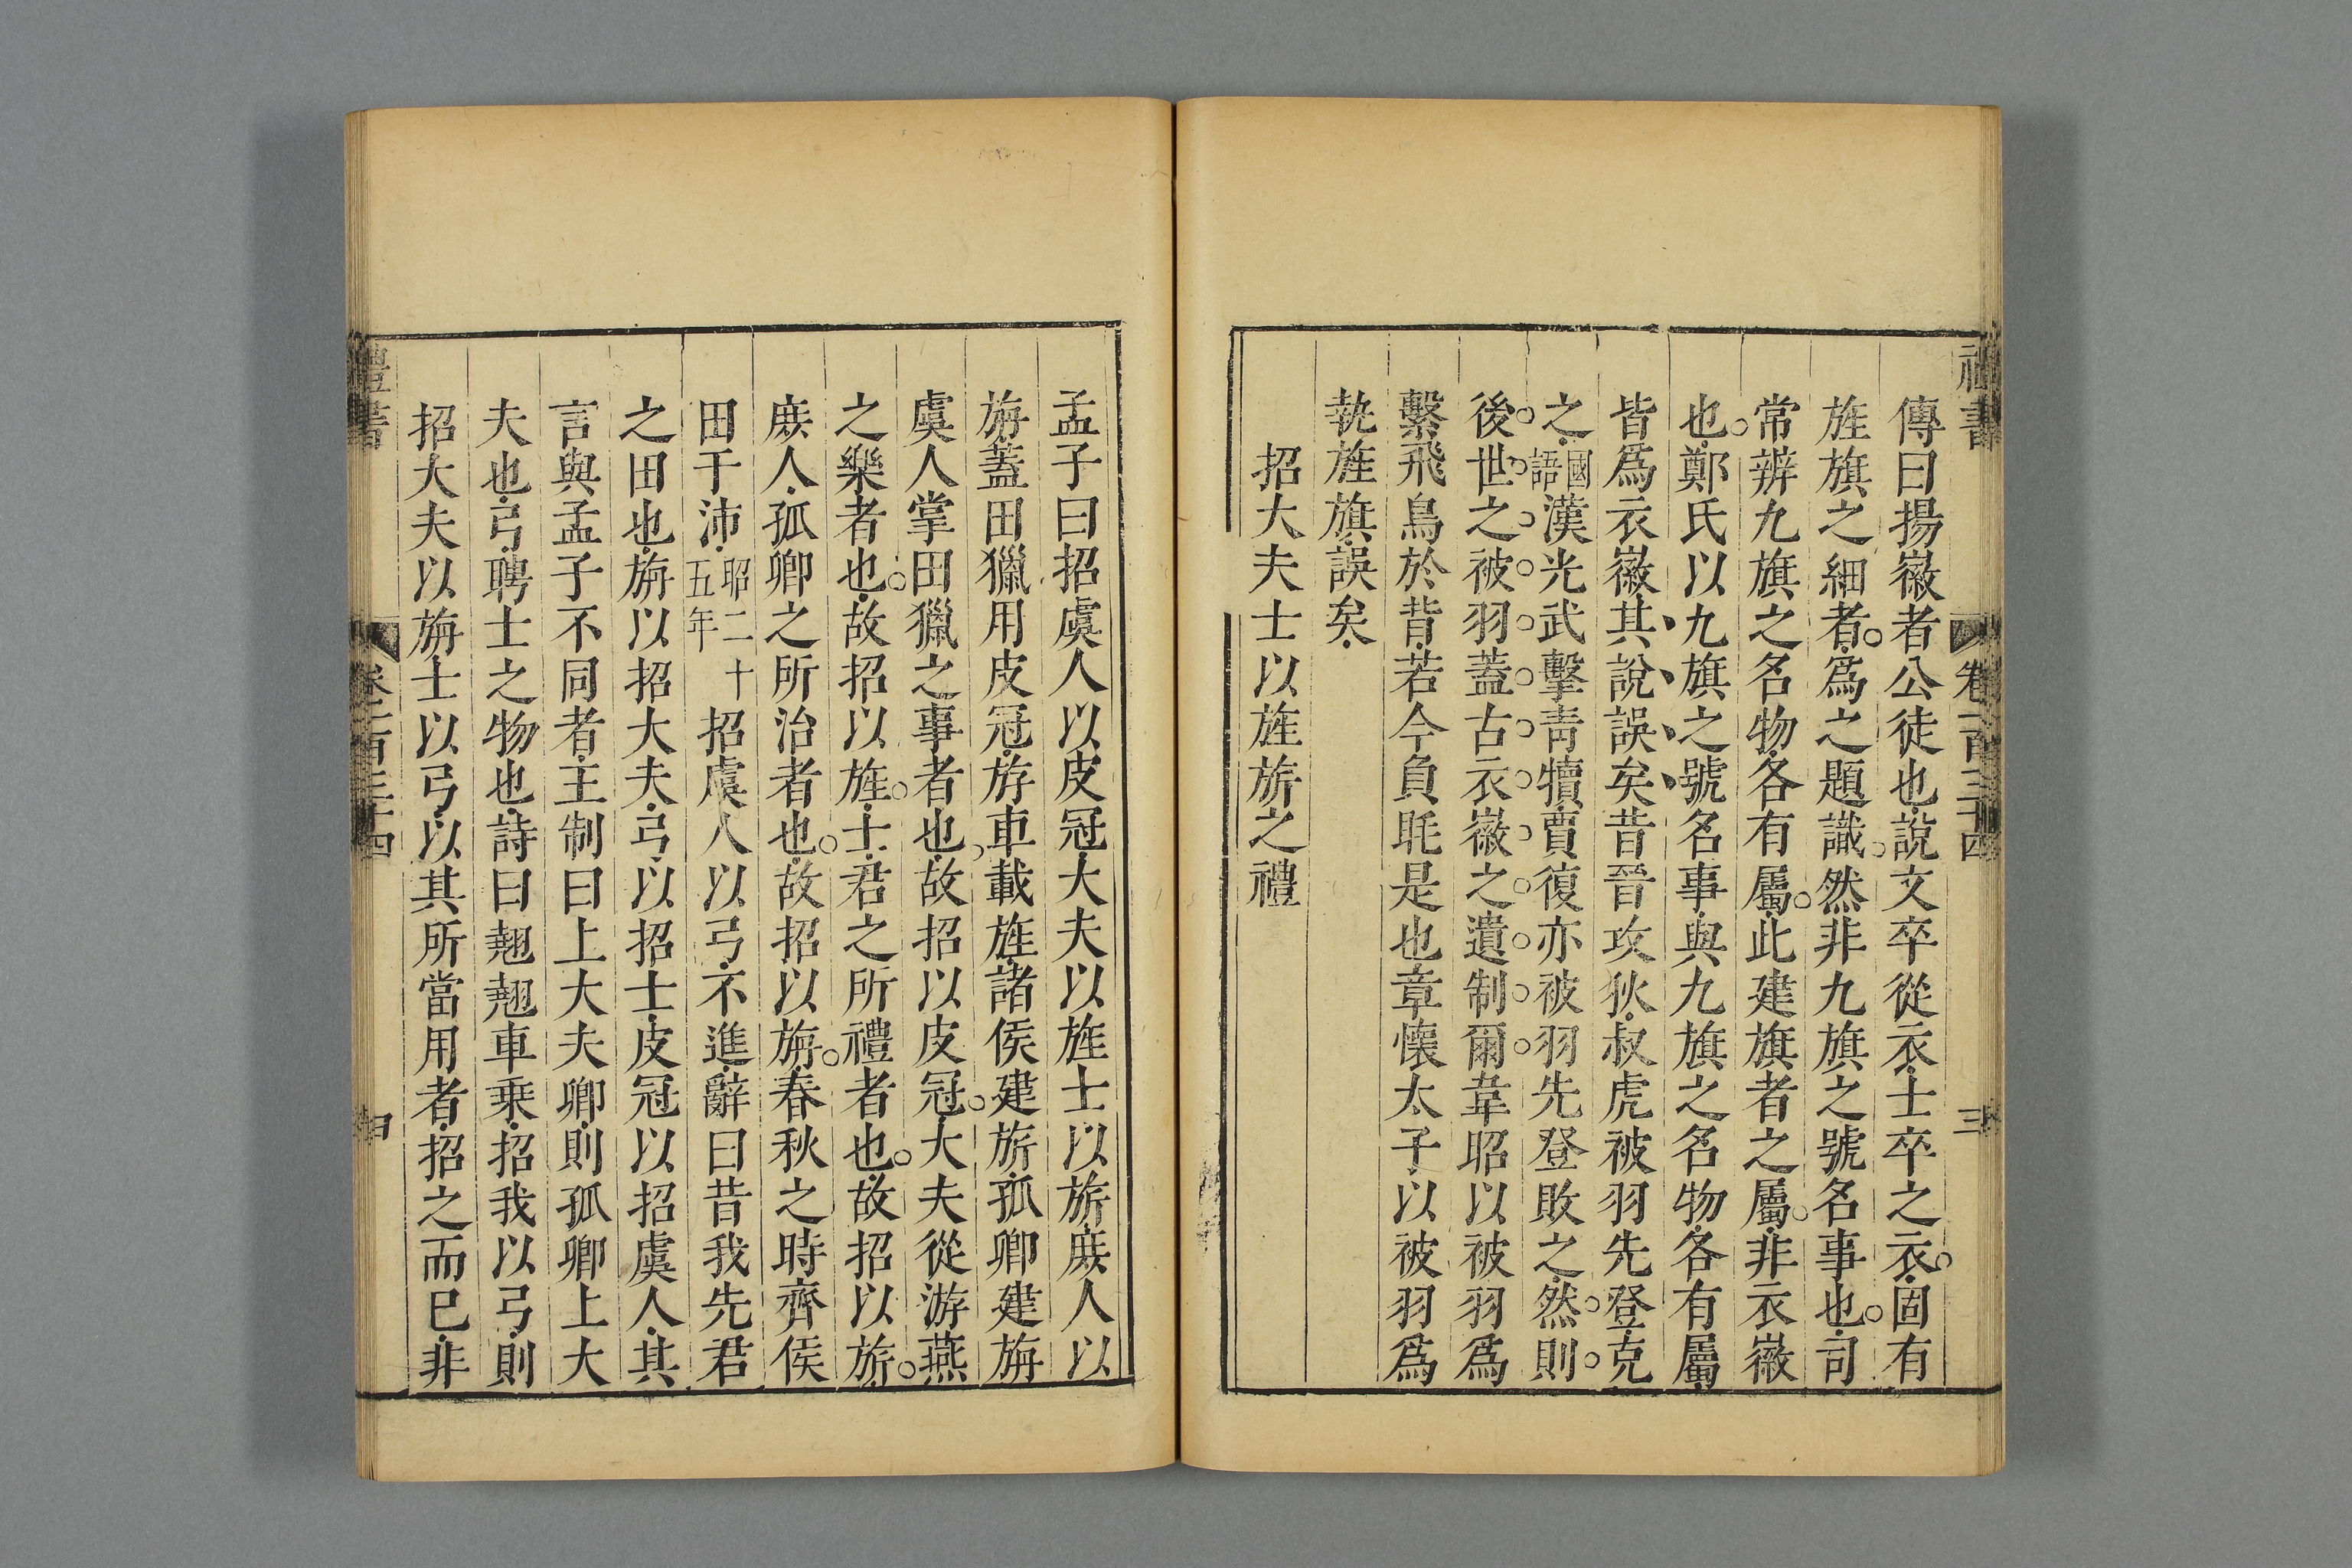 禮書 卷一百三十四 三
傳曰揚徽者公徒也說文卒從衣士卒之衣固有
旌旗之細者爲之題識然非九旗之號名事也司
常辨九旗之名物各有屬此建旗者之屬非衣徽
也鄭氏以九旗之號名事與九旗之名物各有屬
皆爲衣徽其說誤矣昔晉攻狄叔虎被羽先登克
之國語漢光武擊靑犢賈復亦被羽先登敗之然則
後世之被羽蓋古衣徽之遺制爾韋昭以被羽爲
繫飛鳥於背若今負毦是也章懷太子以被羽爲
執旌旗誤矣
招大夫士以旌旂之禮
孟子曰招虞人以皮冠大夫以旌士以旂庶人以
旃蓋田獵用皮冠斿車載旌諸侯建旂孤卿建旃
虞人掌田獵之事者也故招以皮冠大夫從游燕
之樂者也故招以旌士君之所禮者也故招以旂
庶人孤卿之所治者也故招以旃春秋之時齊侯
田于沛昭二十五年招虞人以弓不進辭曰昔我先君
之田也旃以招大夫弓以招士皮冠以招虞人其
言與孟子不同者王制曰上大夫卿則孤卿上大
夫也弓聘士之物也詩曰翹翹車乗招我以弓則
招大夫以旃士以弓以其所當用者招之而已非
禮書